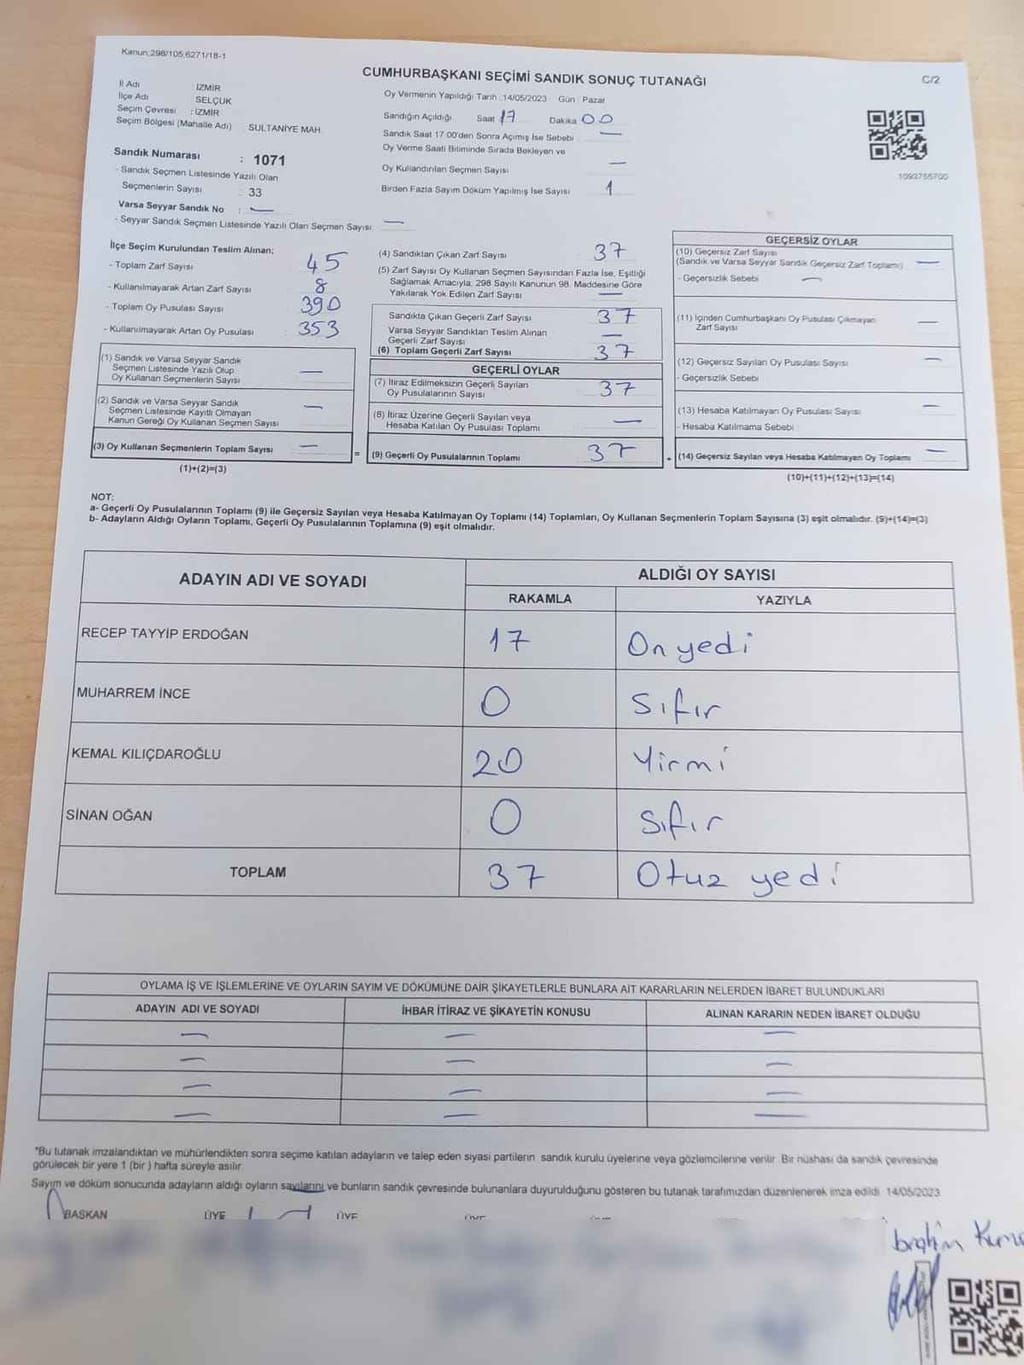 Kanun:298/105;6271/18-1
CUMHURBAŞKANI SEÇİMİ SANDIK SONUÇ TUTANAĞI
C/2
İl Adı İZMİR
İlçe Adı SELÇUK
Seçim Çevresi : İZMİR
Seçim Bölgesi (Mahalle Adı) SULTANİYE MAH.
Oy Vermenin Yapıldığı Tarih :14/05/2023 Gün : Pazar
Sandığın Açıldığı Saat 17 Dakika 00
Sandık Saat 17:00'den Sonra Açılmış İse Sebebi —
Oy Verme Saati Bitiminde Sırada Bekleyen ve
Oy Kullandırılan Seçmen Sayısı —
Birden Fazla Sayım Döküm Yapılmış İse Sayısı 1
1093755700
Sandık Numarası : 1071
- Sandık Seçmen Listesinde Yazılı Olan
Seçmenlerin Sayısı : 33
Varsa Seyyar Sandık No : —
- Seyyar Sandık Seçmen Listesinde Yazılı Olan Seçmen Sayısı: —
İlçe Seçim Kurulundan Teslim Alınan;
- Toplam Zarf Sayısı : 45
- Kullanılmayarak Artan Zarf Sayısı : 8
- Toplam Oy Pusulası Sayısı : 390
- Kullanılmayarak Artan Oy Pusulası : 353
(1) Sandık ve Varsa Seyyar Sandık
Seçmen Listesinde Yazılı Olup
Oy Kullanan Seçmenlerin Sayısı —
(2) Sandık ve Varsa Seyyar Sandık
Seçmen Listesinde Kayıtlı Olmayan
Kanun Gereği Oy Kullanan Seçmen Sayısı —
(3) Oy Kullanan Seçmenlerin Toplam Sayısı —
(1)+(2)=(3)
(4) Sandıktan Çıkan Zarf Sayısı 37
(5) Zarf Sayısı Oy Kullanan Seçmen Sayısından Fazla İse, Eşitliği
Sağlamak Amacıyla, 298 Sayılı Kanunun 98. Maddesine Göre
Yakılarak Yok Edilen Zarf Sayısı —
Sandıkta Çıkan Geçerli Zarf Sayısı 37
Varsa Seyyar Sandıktan Teslim Alınan
Geçerli Zarf Sayısı —
(6) Toplam Geçerli Zarf Sayısı 37
GEÇERLİ OYLAR
(7) İtiraz Edilmeksizin Geçerli Sayılan
Oy Pusulalarının Sayısı 37
(8) İtiraz Üzerine Geçerli Sayılan veya
Hesaba Katılan Oy Pusulası Toplamı —
= (9) Geçerli Oy Pusulalarının Toplamı 37
GEÇERSİZ OYLAR
(10) Geçersiz Zarf Sayısı
(Sandık ve Varsa Seyyar Sandık Geçersiz Zarf Toplamı) —
- Geçersizlik Sebebi —
(11) İçinden Cumhurbaşkanı Oy Pusulası Çıkmayan
Zarf Sayısı —
(12) Geçersiz Sayılan Oy Pusulası Sayısı —
- Geçersizlik Sebebi
(13) Hesaba Katılmayan Oy Pusulası Sayısı —
- Hesaba Katılmama Sebebi
+ (14) Geçersiz Sayılan veya Hesaba Katılmayan Oy Toplamı —
(10)+(11)+(12)+(13)=(14)
NOT:
a- Geçerli Oy Pusulalarının Toplamı (9) ile Geçersiz Sayılan veya Hesaba Katılmayan Oy Toplamı (14) Toplamları, Oy Kullanan Seçmenlerin Toplam Sayısına (3) eşit olmalıdır. (9)+(14)=(3)
b- Adayların Aldığı Oyların Toplamı, Geçerli Oy Pusulalarının Toplamına (9) eşit olmalıdır.
ADAYIN ADI VE SOYADI
ALDIĞI OY SAYISI
RAKAMLA YAZIYLA
RECEP TAYYİP ERDOĞAN 17 On yedi
MUHARREM İNCE 0 Sıfır
KEMAL KILIÇDAROĞLU 20 Yirmi
SİNAN OĞAN 0 Sıfır
TOPLAM 37 Otuz yedi
OYLAMA İŞ VE İŞLEMLERİNE VE OYLARIN SAYIM VE DÖKÜMÜNE DAİR ŞİKAYETLERLE BUNLARA AİT KARARLARIN NELERDEN İBARET BULUNDUKLARI
ADAYIN ADI VE SOYADI İHBAR İTİRAZ VE ŞİKAYETİN KONUSU ALINAN KARARIN NEDEN İBARET OLDUĞU
— — —
— — —
— — —
— — —
*Bu tutanak imzalandıktan ve mühürlendikten sonra seçime katılan adayların ve talep eden siyasi partilerin sandık kurulu üyelerine veya gözlemcilerine verilir. Bir nüshası da sandık çevresinde
görülecek bir yere 1 (bir ) hafta süreyle asılır.
Sayım ve döküm sonucunda adayların aldığı oyların sayılarını ve bunların sandık çevresinde bulunanlara duyurulduğunu gösteren bu tutanak tarafımızdan düzenlenerek imza edildi. 14/05/2023
BAŞKAN ÜYE ÜYE
İbrahim